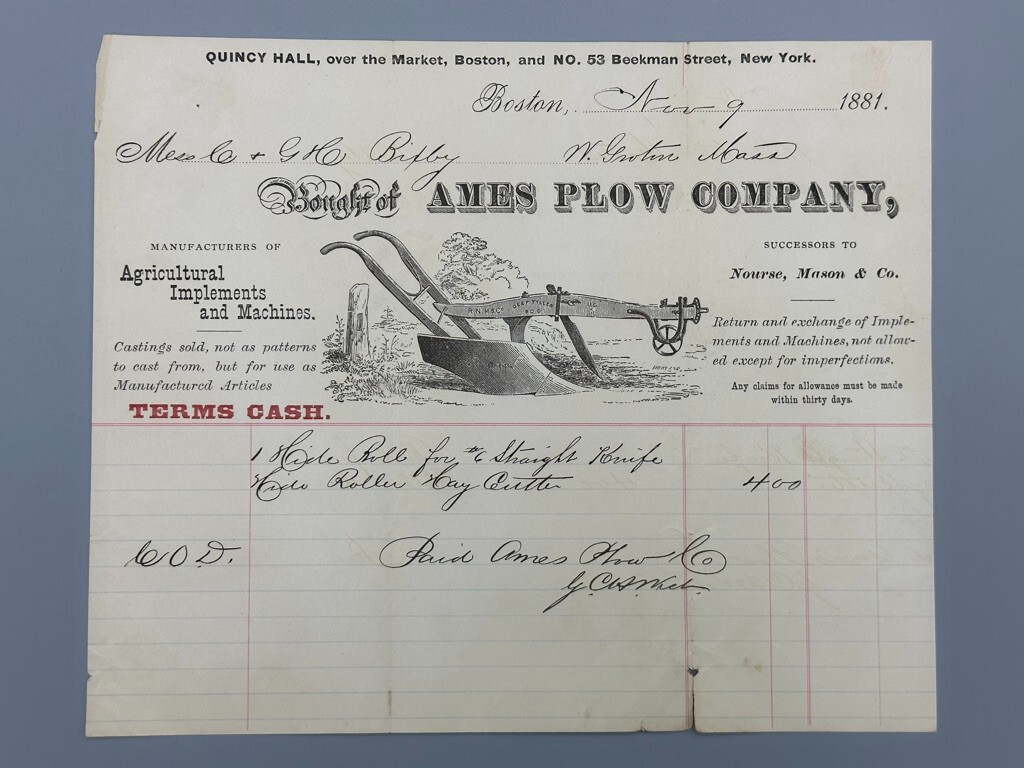 QUINCY HALL, over the Market, Boston, and NO. 53 Beekman Street, New York.
Boston, Nov 9 1881.
Mess C & G H Bixby W. Groton Mass
Bought of AMES PLOW COMPANY,
MANUFACTURERS OF
Agricultural
Implements
and Machines.
Castings sold, not as patterns
to cast from, but for use as
Manufactured Articles
TERMS CASH.
SUCCESSORS TO
Nourse, Mason & Co.
Return and exchange of Imple-
ments and Machines, not allow-
ed except for imperfections.
Any claims for allowance must be made
within thirty days.
1 Hide Roll for #6 Straight Knife
Hide Roller Hay Cutter 4 00
C O D. Paid Ames Plow Co